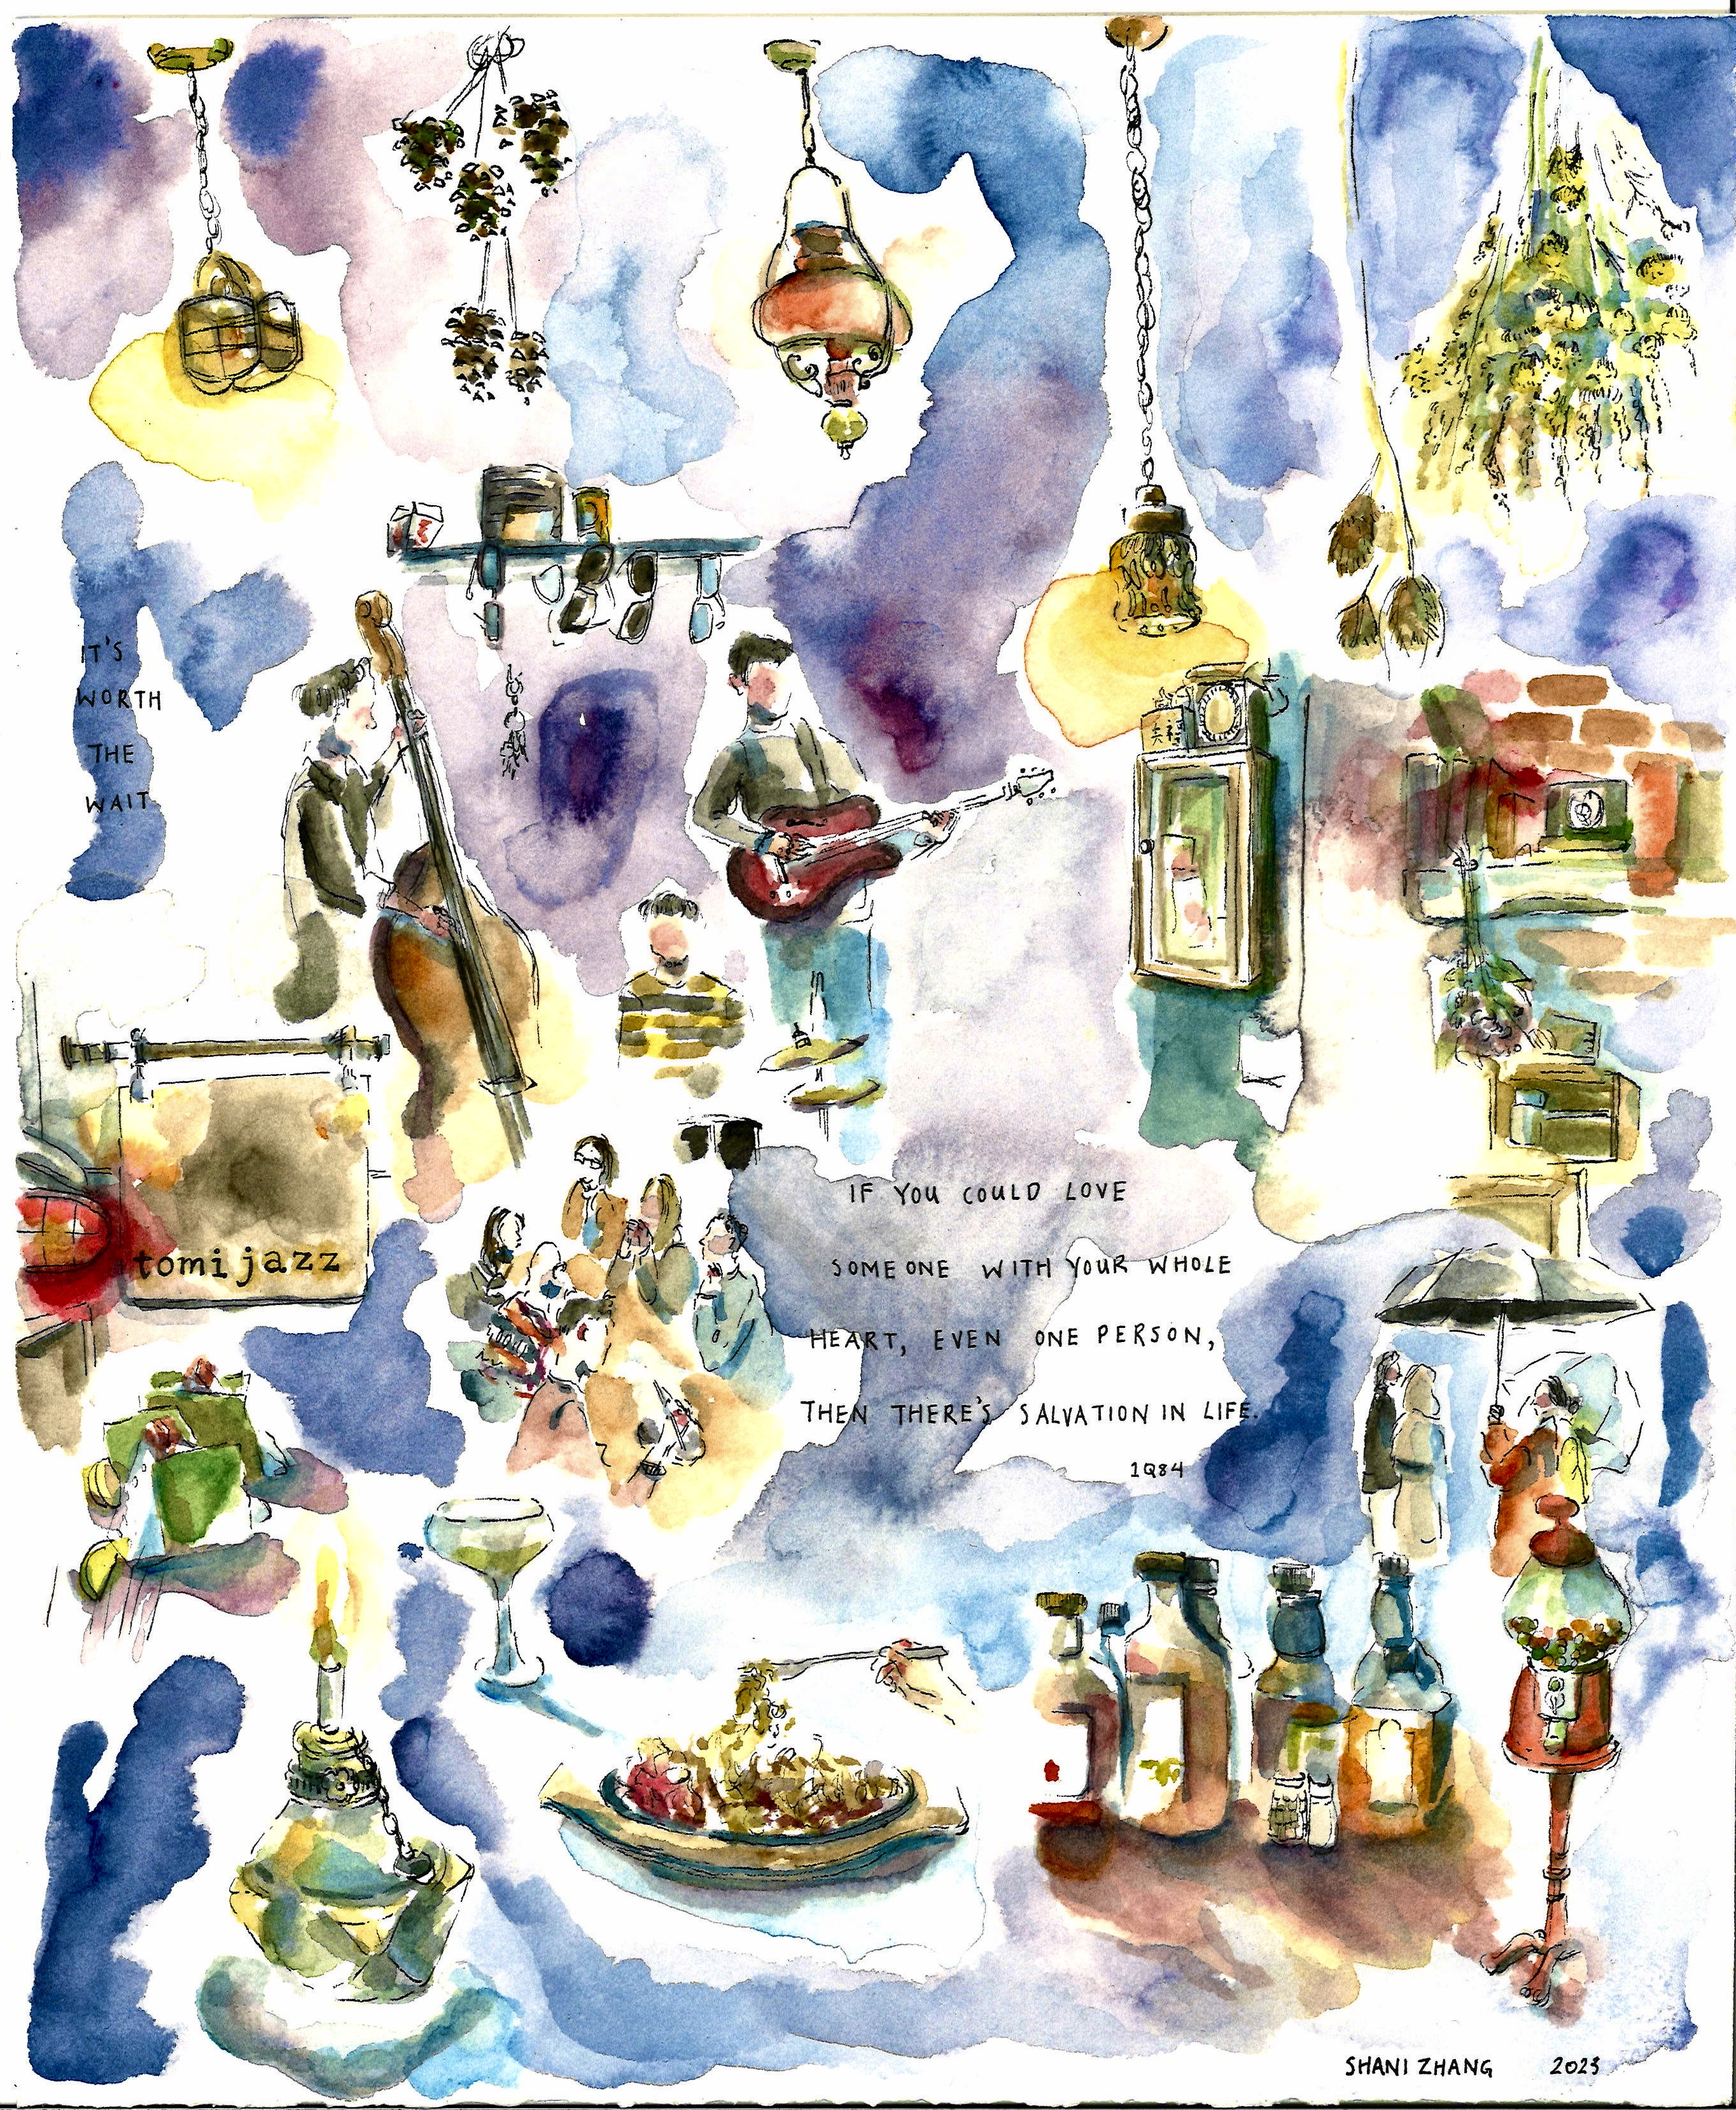 IT'S
WORTH
THE
WAIT
tomi jazz
IF YOU COULD LOVE
SOMEONE WITH YOUR WHOLE
HEART, EVEN ONE PERSON,
THEN THERE'S SALVATION IN LIFE.
1Q84
SHANI ZHANG 2023